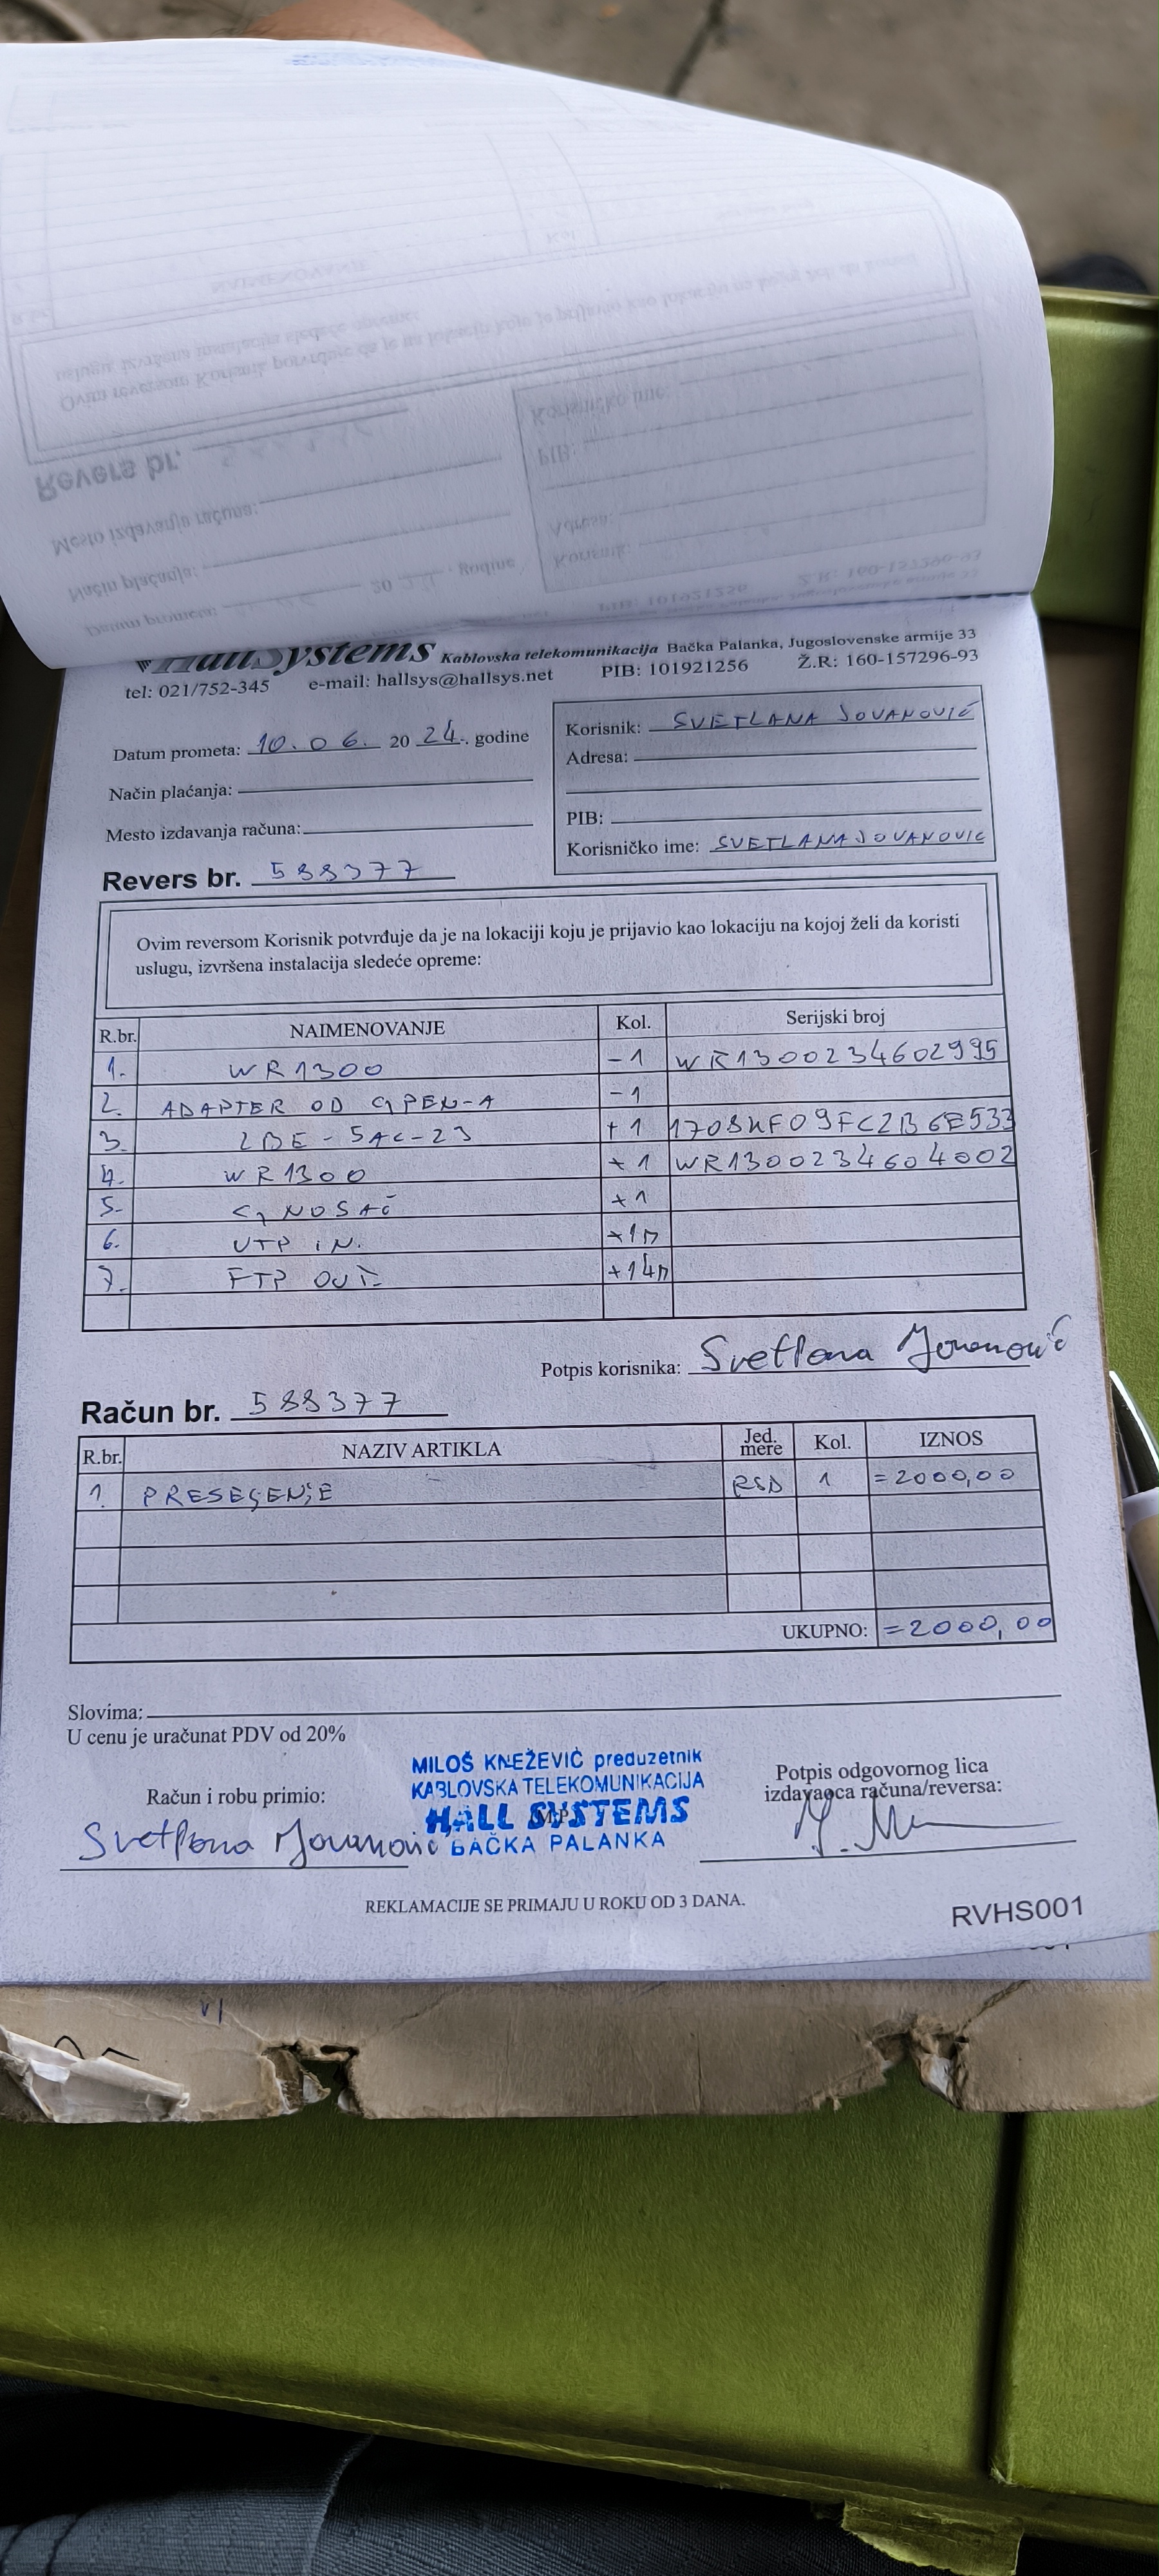 HallSystems Kablovska telekomunikacija Bačka Palanka, Jugoslovenske armije 33
tel: 021/752-345 e-mail: hallsys@hallsys.net PIB: 101921256 Ž.R: 160-157296-93
Datum prometa: 10.06. 20 24. godine
Način plaćanja:
Mesto izdavanja računa:
Korisnik: SVETLANA JOVANOVIĆ
Adresa:
PIB:
Korisničko ime: SVETLANAJOVANOVIC
Revers br. 588377
Ovim reversom Korisnik potvrđuje da je na lokaciji koju je prijavio kao lokaciju na kojoj želi da koristi
uslugu, izvršena instalacija sledeće opreme:
R.br. NAIMENOVANJE Kol. Serijski broj
1. WR1300 -1 WR1300234602995
2. ADAPTER OD -1
3. LBE-5AC-23 +1 1708KF09FC2B6E533
4. WR1300 +1 WR1300234604002
5. NOSAČ +1
6. UTP IN. +1m
7. FTP OUT. +14m
Potpis korisnika: Svetlana Jovanović
Račun br. 588377
R.br. NAZIV ARTIKLA Jed. mere Kol. IZNOS
1. PRESEGENJE RSD 1 =2000,00
UKUPNO: =2000,00
Slovima:
U cenu je uračunat PDV od 20%
Račun i robu primio:
Svetlana Jovanović
MILOŠ KNEŽEVIĆ preduzetnik
KABLOVSKA TELEKOMUNIKACIJA
HALL SYSTEMS
M.P.
BAČKA PALANKA
Potpis odgovornog lica
izdavaoca računa/reversa:
REKLAMACIJE SE PRIMAJU U ROKU OD 3 DANA.
RVHS001